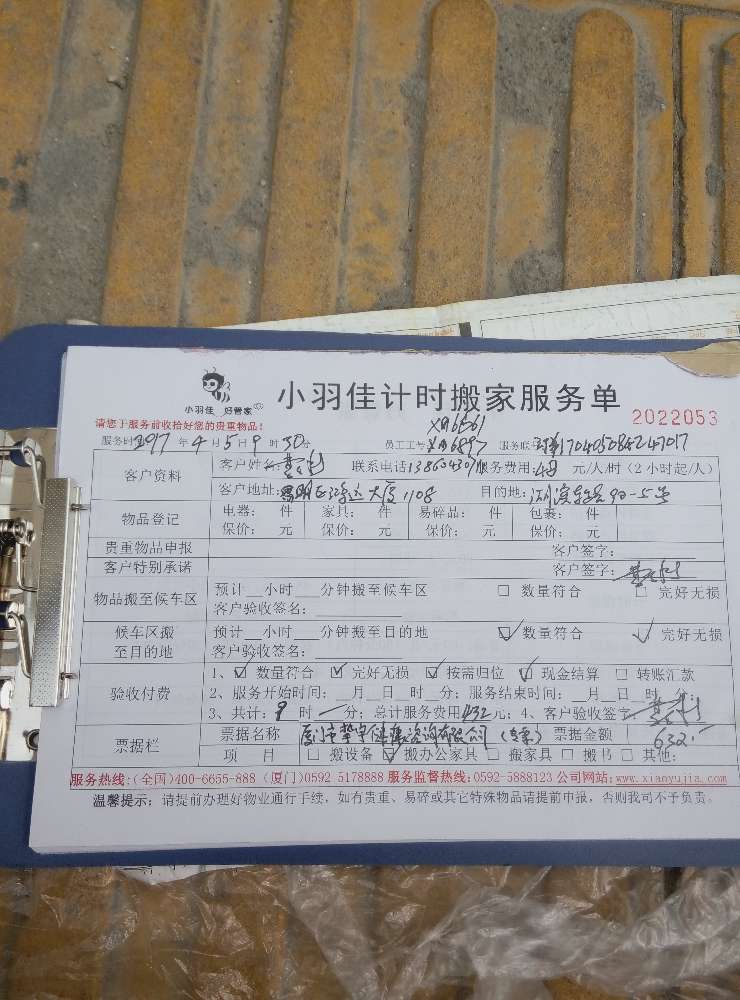 小羽佳 好管家
小羽佳计时搬家服务单
2022053
请您于服务前收拾好您的贵重物品!
XM6561
服务时间 2017 年 4 月 5 日 9 时 30 分 员工工号 XM6897 服务联单
客户资料
客户姓名 联系电话 服务费用: 48 元/人/时 (2小时起/人)
客户地址: 大厦1108 目的地: 90-5号
物品登记
电器: 件 家具: 件 易碎品: 件 包裹: 件
保价: 元 保价: 元 保价: 元 保价: 元
贵重物品申报 客户签字:
客户特别承诺 客户签字:
物品搬至候车区
预计__小时___分钟搬至候车区 □ 数量符合 □ 完好无损
客户验收签名:
候车区搬至目的地
预计__小时___分钟搬至目的地 ☑ 数量符合 ☑ 完好无损
客户验收签名:
验收付费
1、☑ 数量符合 ☑ 完好无损 ☑ 按需归位 ☑ 现金结算 □ 转账汇款
2、服务开始时间: __月__日 时__分; 服务结束时间: __月__日 时__分;
3、共计: 9 时 分; 总计服务费用 432 元; 4、客户验收签字
票据栏
票据名称 厦门市 健康咨询有限公司 票据金额 632.-
项 目 □ 搬设备 ☑ 搬办公家具 □ 搬家具 □ 搬书 □ 其他:
服务热线:(全国)400-6655-888 (厦门)0592 5178888 服务监督热线:0592-5888123 公司网站:www.xiaoyujia.com
温馨提示: 请提前办理好物业通行手续, 如有贵重、易碎或其它特殊物品请提前申报, 否则我司不予负责。